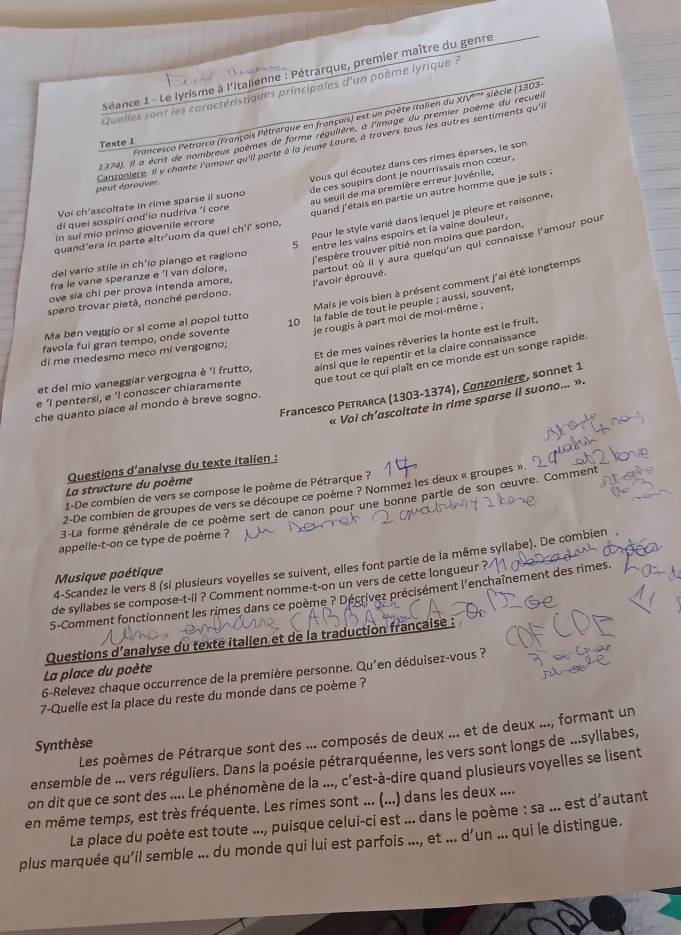 Séance 1 - Le lyrisme à l'italienne : Pétrarque, premier maître du genre
Quelles sont les caractéristiques principales d'un poème lyrique ?
Texte 1
Francesco Petrarca (François Pétrarque en français) est un poète italien du XIVème siècle (1303-
1374). Il a écrit de nombreux poèmes de forme régulière, à l'image du premier poème du recueil
Canzoniere. Il y chante l'amour qu'il porte à la jeune Laure, à travers tous les autres sentiments qu'il
peut éprouver.
Voi ch'ascoltate in rime sparse il suono
di quei sospiri ond'io nudriva 'l core
in sul mio primo giovenile errore
quand'era in parte altr'uom da quel ch'i' sono,
del vario stile in ch'io piango et ragiono
fra le vane speranze e 'l van dolore,
ove sia chi per prova intenda amore,
spero trovar pietà, nonché perdono.
Ma ben veggio or sì come al popol tutto
favola fui gran tempo, onde sovente
di me medesmo meco mi vergogno;
et del mio vaneggiar vergogna è 'l frutto,
e 'l pentersi, e 'l conoscer chiaramente
che quanto piace al mondo è breve sogno.
Vous qui écoutez dans ces rimes éparses, le son
de ces soupirs dont je nourrissais mon cœur,
au seuil de ma première erreur juvénile,
quand j'étais en partie un autre homme que je suis ;
5 Pour le style varié dans lequel je pleure et raisonne,
entre les vains espoirs et la vaine douleur,
j'espère trouver pitié non moins que pardon,
partout où il y aura quelqu'un qui connaisse l'amour pour
l'avoir éprouvé.
Mais je vois bien à présent comment j'ai été longtemps
10 la fable de tout le peuple ; aussi, souvent,
je rougis à part moi de moi-même ;
Et de mes vaines rêveries la honte est le fruit,
ainsi que le repentir et la claire connaissance
que tout ce qui plaît en ce monde est un songe rapide.
Francesco PETRARCA (1303-1374), Canzoniere, sonnet 1
« Voi ch'ascoltate in rime sparse il suono... ».
Questions d'analyse du texte italien :
La structure du poème
1-De combien de vers se compose le poème de Pétrarque ? 14
2-De combien de groupes de vers se découpe ce poème ? Nommez les deux « groupes ».
3-La forme générale de ce poème sert de canon pour une bonne partie de son œuvre. Comment
appelle-t-on ce type de poème ?
Musique poétique
4-Scandez le vers 8 (si plusieurs voyelles se suivent, elles font partie de la même syllabe). De combien
de syllabes se compose-t-il ? Comment nomme-t-on un vers de cette longueur ? 11
5-Comment fonctionnent les rimes dans ce poème ? Décrivez précisément l'enchaînement des rimes.
Questions d'analyse du texte italien et de la traduction française :
CDE CDE
La place du poète
6-Relevez chaque occurrence de la première personne. Qu'en déduisez-vous ?
7-Quelle est la place du reste du monde dans ce poème ?
Synthèse
Les poèmes de Pétrarque sont des ... composés de deux ... et de deux ..., formant un
ensemble de ... vers réguliers. Dans la poésie pétrarquéenne, les vers sont longs de ...syllabes,
on dit que ce sont des .... Le phénomène de la ..., c'est-à-dire quand plusieurs voyelles se lisent
en même temps, est très fréquente. Les rimes sont ... (...) dans les deux ....
La place du poète est toute ..., puisque celui-ci est ... dans le poème : sa ... est d'autant
plus marquée qu'il semble ... du monde qui lui est parfois ..., et ... d'un ... qui le distingue.